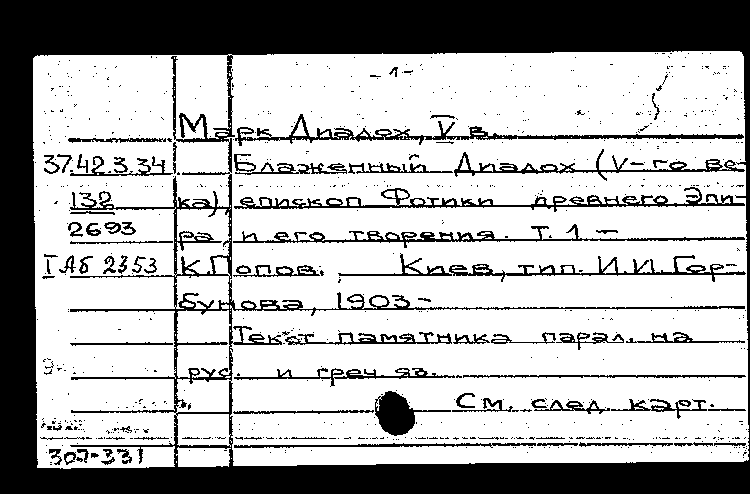 - 1 -
Марк Диадох, V в.
37.42.3.34 Блаженный Диадох (V-го ве-
132 ка), епископ Фотики древнего Эпи-
2693 ра, и его творения. Т. 1 –
I АБ 2353 К. Попов. Киев, тип. И.И. Гор-
бунова, 1903 –
Текст памятника парал. на
рус. и греч. яз.
См. след. карт.
307-331